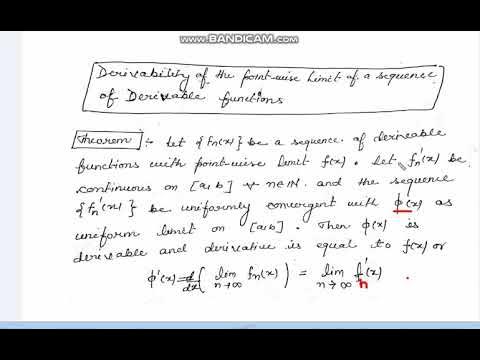 WWW.BANDICAM.COM
Derivability of the point-wise Limit of a sequence
of Derivable functions
Theorem :- Let {Fn(x)} be a sequence of deriveable
functions with point-wise limit f(x). Let fn'(x) be
continuous on [a,b] ∀ n∈IN. and the sequence
{fn'(x)} be uniformly convergent with ϕ'(x) as
uniform limit on [a,b]. Then ϕ(x) is
derivable and derivative is equal to f(x) or
ϕ'(x) = d/dx ( lim n→∞ fn(x) ) = lim n→∞ f'n(x) .